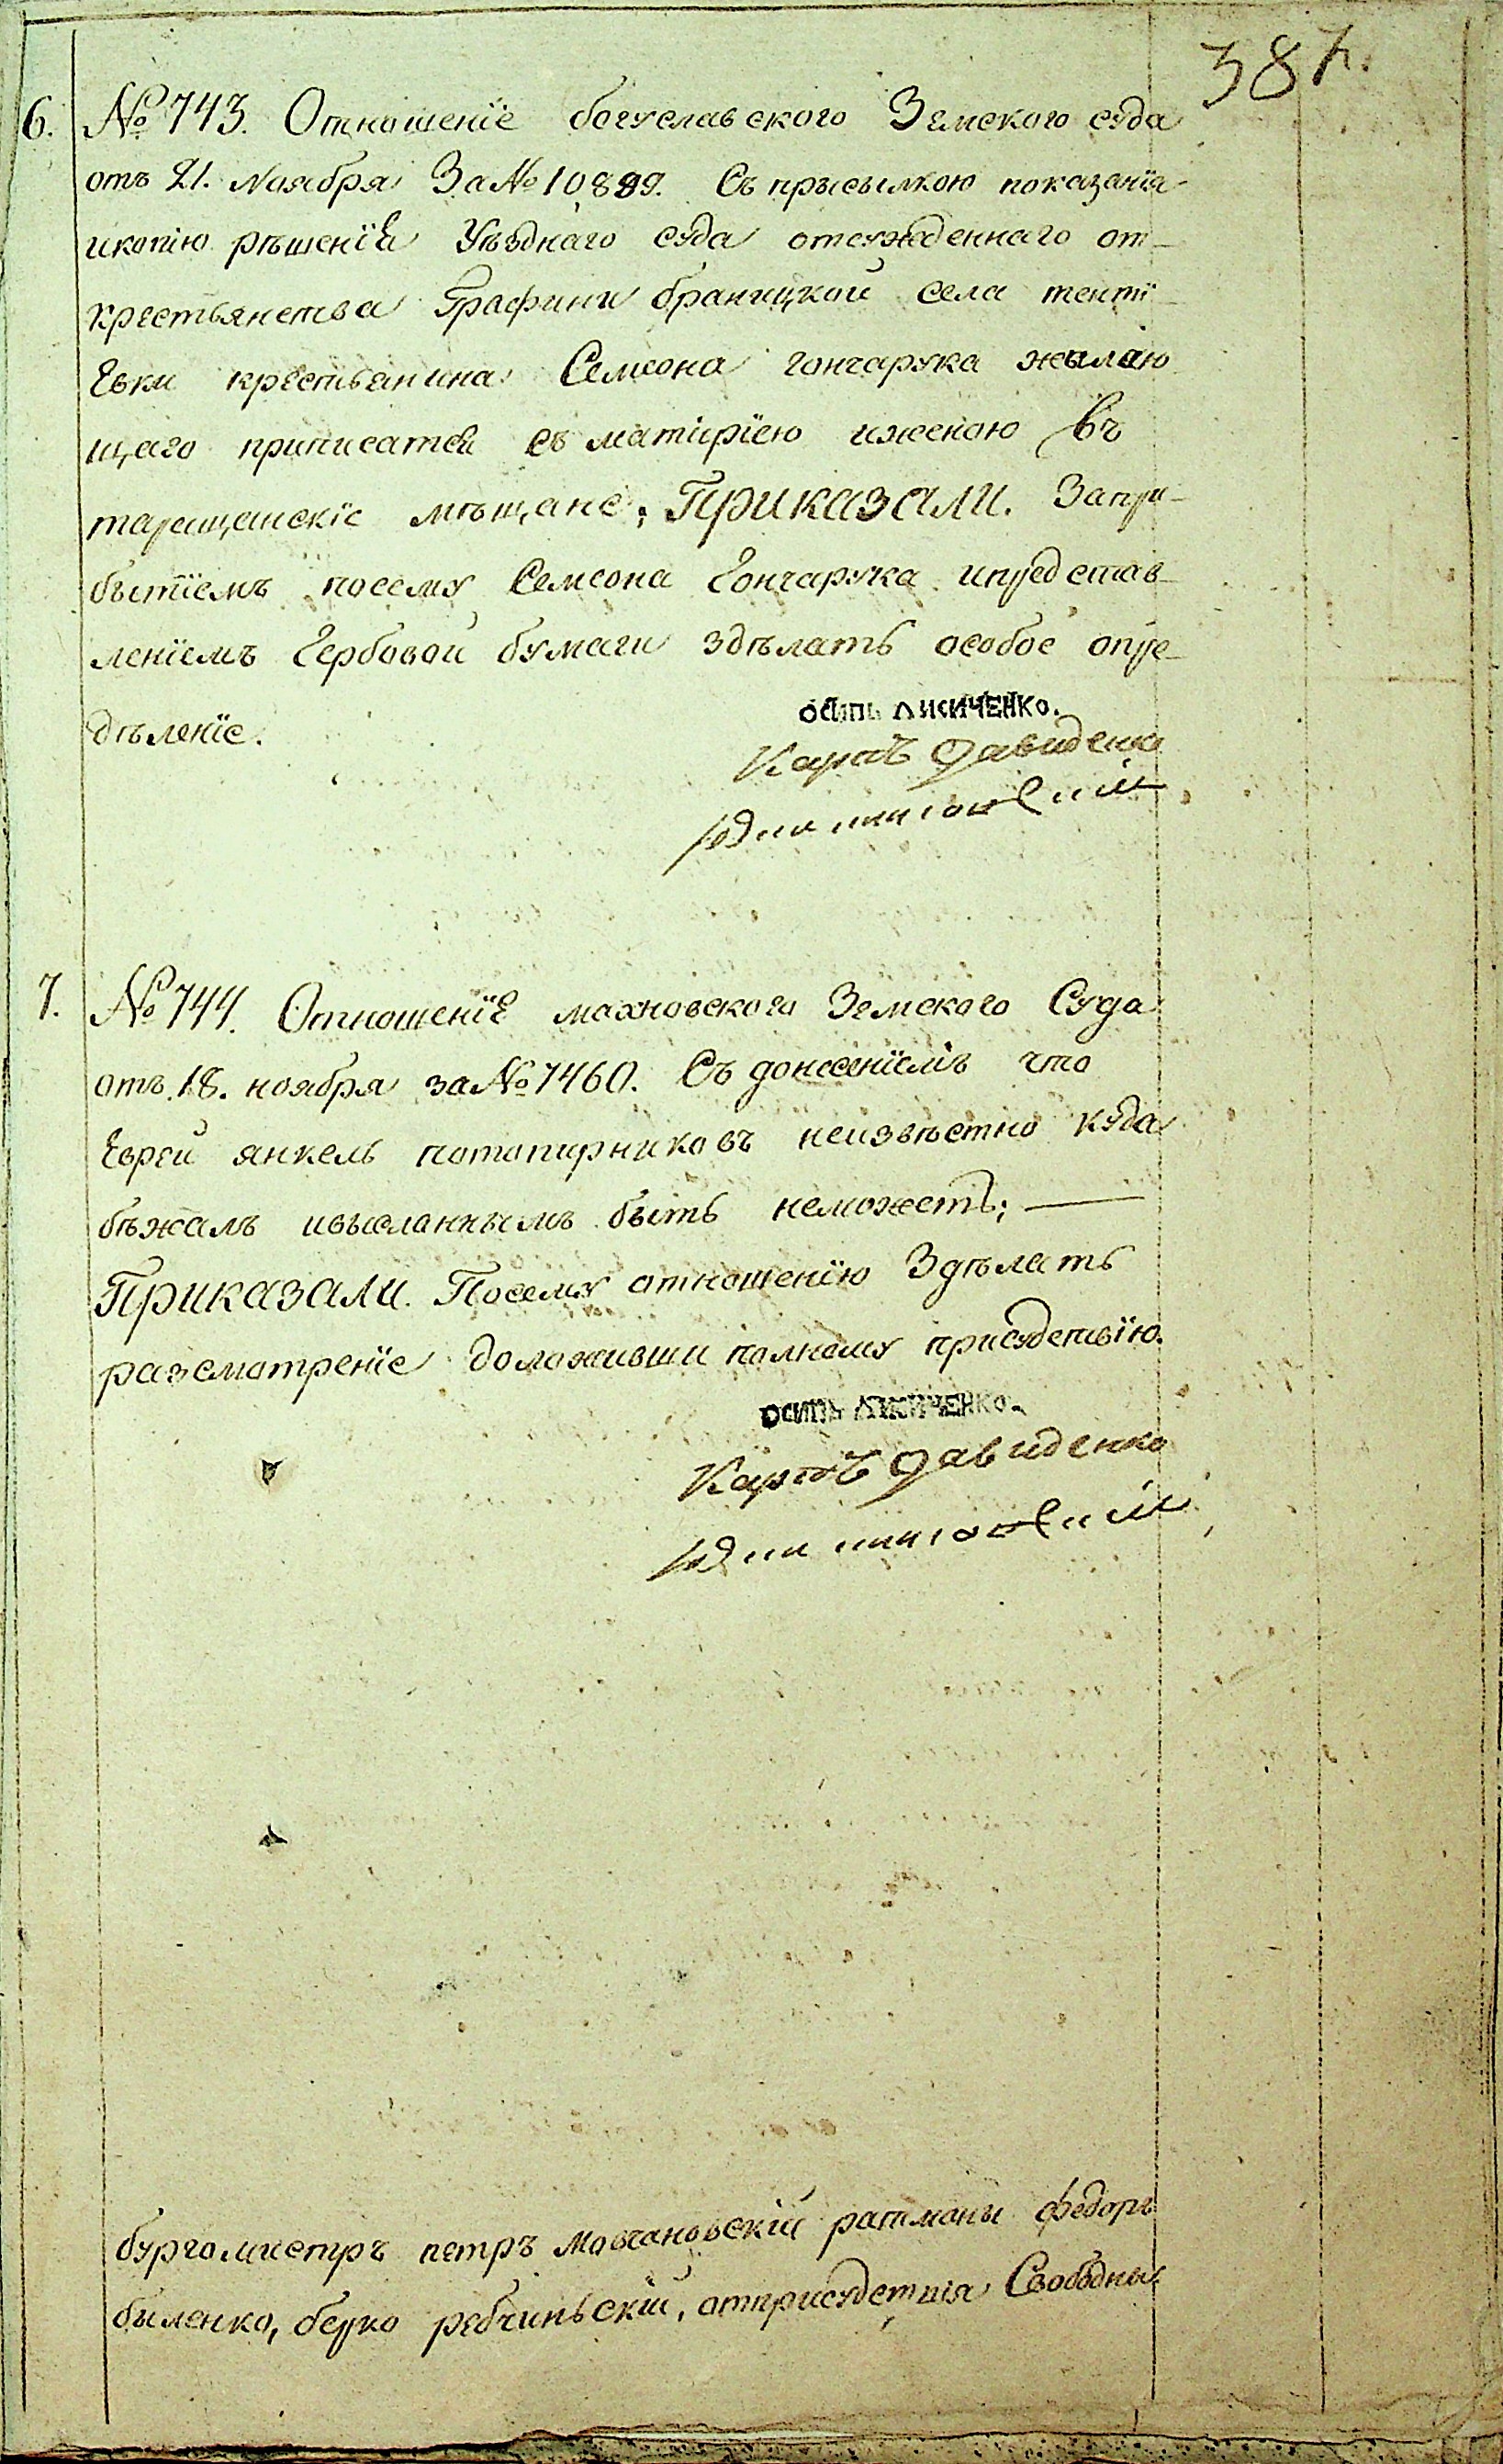 387.
6. № 743. Отношеніе богуславского Земского суда
отъ 21. Ноября За № 10,889. Съ прысылкою показанїя
икопїю рѣшенїя Уѣзднаго суда отсужденнаго от-
крестьянства Графини браницкой села тенті-
евки крестьянина Семсона гончарука жылаю
щаго приписатся съ матірїею иженою въ
таращанскїе мѣщане; Приказали. Запри-
бытїемъ посему Семсона Гончарука ипредстав-
ленїемъ Гербовой бумаги здѣлать особое опре-
дѣленїе.
осипъ лисиченко.
Карпъ Давиденко
7. № 744. Отношенїе махновского Земского Суда
отъ 18. ноября за № 7460. Съ донесенїемъ что
Еврей янкель потопирниковъ неизвѣстно куда
бѣжалъ ивысланнымъ быть неможетъ; —
Приказали. Посему отношенїю Здѣлать
разсмотренїе доложивши полному присудствїю.
осипъ лисиченко.
Карпъ Давиденко
бургомистръ петръ мовчановскїй ратманы федоръ
быленко, берко рябчиньскїй, отприсудствїя Свободны